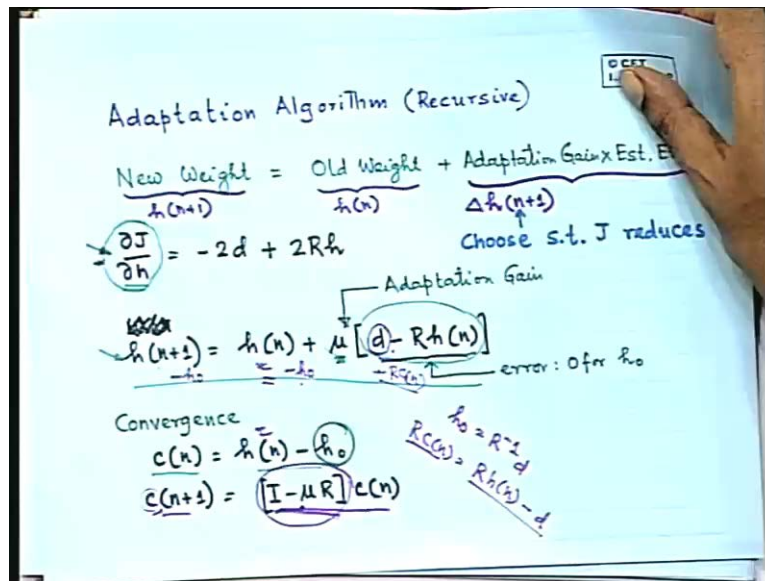 Adaptation Algorithm (Recursive)
New Weight = Old Weight + Adaptation Gain x Est.
h(n+1) h(n) Δh(n+1)
Choose s.t. J reduces
- ∂J/∂h = -2d + 2Rh
Adaptation Gain
h(n+1) = h(n) + μ [d - Rh(n)]
-h₀ = -h₀ -Rc(n)
error: 0 for h₀
Convergence
c(n) = h(n) - h₀
c(n+1) = [I - μR] c(n)
h₀ = R⁻¹d
Rc(n) = Rh(n) - d